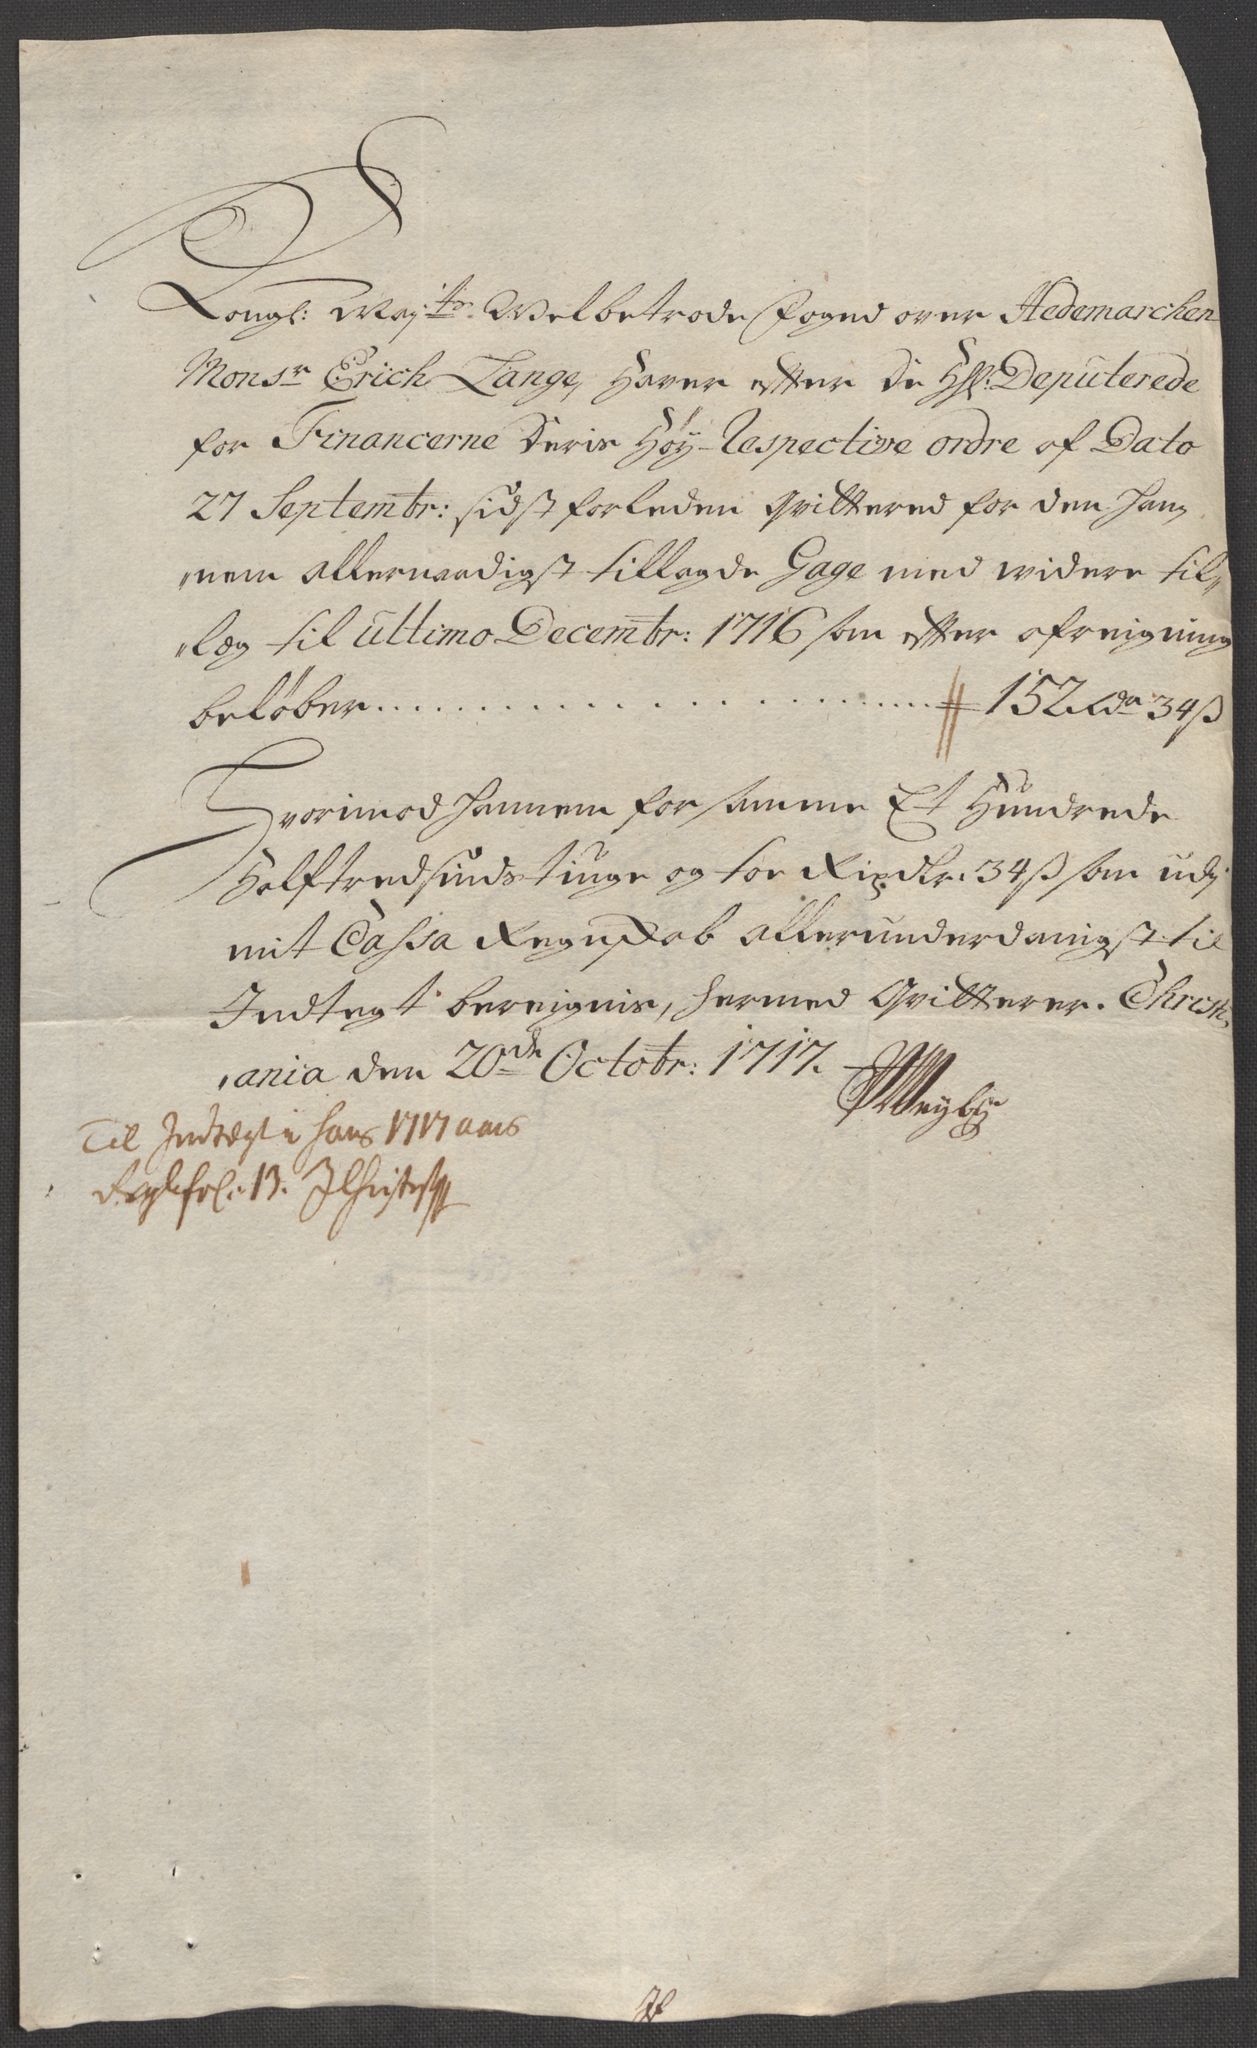 Kongl: May:ts Welbetrode Foged over Hedemarchen
Monsr Erich Lange, Haver efter de Hrr: Deputerede
for Financerne Deris Høy-Respective ordre af Dato
27 Septembr: sidst forleden qvittered for den han¬
„nem allernaadigst tillagde Gage med widere til„
„læg til ultimo Decembr: 1716 som efter afreigning
beløber .......... 152 Rdr 34 ß
Hvorimod hannem for samme Et Hundrede
Halftredsinds tiuge og toe Rixdlr. 34 ß som udj
mit Cassa Regnskab allerunderdanigst til
Indtegt bereignis, hermed Qvitterer. Christi„
„ania den 20de Octobr: 1717.
Til Indtegt i hans 1717 aars
fol: 13.